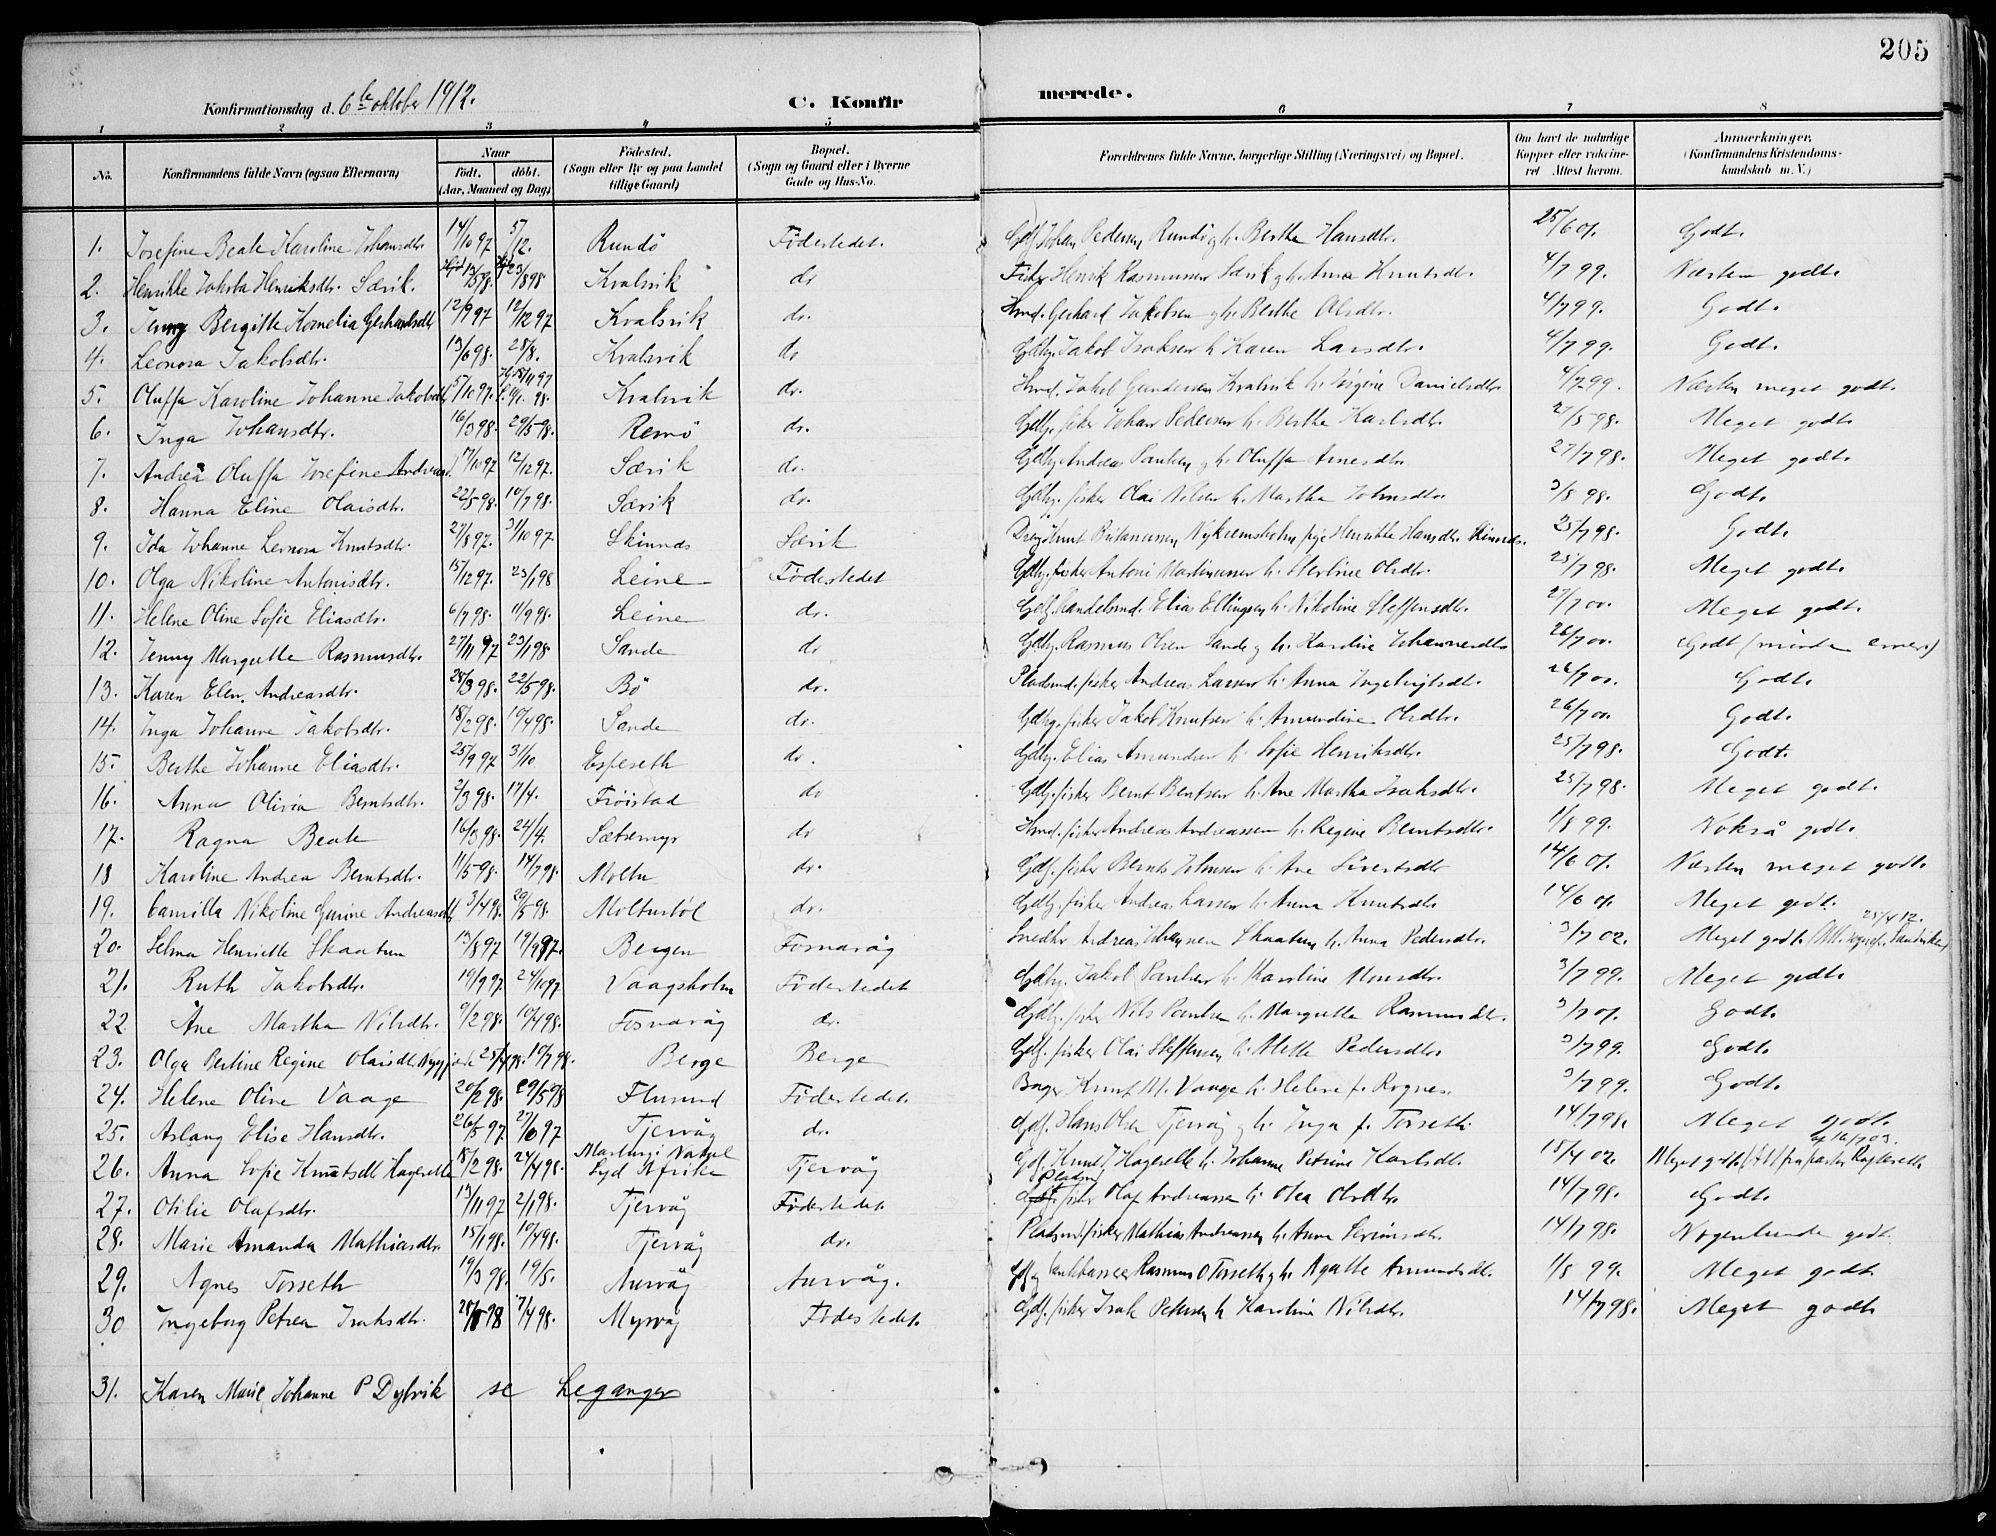 205
Konfirmationsdag d. 6te oktober 1912.
C. Konfir
merede.
1 2 3 4 5 6 7 8
No. Konfirmandens fulde Navn (ogsaa Efternavn) Naar født. døbt. (Aar, Maaned og Dag) Fødested. (Sogn eller By og paa Landet tillige Gaard) Bopæl. (Sogn og Gaard eller i Byerne Gade og Hus-No. Forældrenes fulde Navne, borgerlige Stilling (Næringsvei) og Bopæl. Om havt de naturlige Kopper eller vakcineret. Attest herom. Anmærkninger. (Konfirmandens Kristendomskundskab m. V.)
1. Josefine Beate Karoline Johansdtr. 14/10 97 5/12. Rundö Födestedet. Gdf. Johan Pedersen Rundö g h. Berthe Hansdtr. 25/6 01. Godt.
2. Henrikke Jakoba Henriksdtr. Sævik. 13/5 98. 23/8 98 Kvalsvik do Fisker Henrik Rasmussen Sævik g h. Anna Knutsdtr. 4/7 99. Næsten godt.
3. Jenny Bergitte Kornelia Gerhardsdtr 12/9 97 12/12 97 Kvalsvik do. Hmd. Gerhard Jakobsen g h. Berthe Olsdtr. 4/7 99. Godt.
4. Leonora Jakobsdtr. 13/6 98. 28/8. Kvalsvik do Gdbr. Jakob Isaksen h. Karen Larsdtr. 4/7 99. Godt.
5. Oluffa Karoline Johanne Jakobsdtr 5/10 97. Kvalsvik do. Hmd. Jakob Gundersen Kvalsvik h. Daniелsdtr. 4/7 99. Næsten meget godt.
6. Inga Johansdtr. 16/3 98. 29/5 98. Remö do. Gdbr. fisker Johan Pedersen h. Berthe Karlsdtr. 27/5 98. Meget godt.
7. Andrea Oluffa Josefine Andreasd. 17/10 97 12/12 97. Sævik do. Gdbr. Andreas Paulsen g h. Oluffa Arnesdtr. 27/7 98. Meget godt.
8. Hanna Eline Olaisdtr. 22/5 98. 10/7 98. Sævik do. Gdbr. fisker Olai Nilsen h. Martha Johnsdtr. 3/8 98. Godt.
9. Ida Johanne Leonora Knutsdtr. 27/8 97. 31/10 97 Skinnes Sævik Knut pige Henrikke Hansdtr. Skinnes. 25/7 98. Godt.
10. Olga Nikoline Antonisdtr. 15/12 97. 23/1 98 Leine Födestedet Gdbr. fisker Antoni Martinussen h. Olsdtr. 25/7 98. Meget godt.
11. Helene Oline Sofie Eliasdtr. 6/7 98. 11/9 98. Leine do. Gdf. Handelsmd. Elias Ellingsen h. Nikoline Steffensdtr. 27/7 00. Meget godt.
12. Jenny Margrethe Rasmusdtr. 27/11 97 23/1 98 Sande do Gdbr. Rasmus Olsen Sande g h. Karoline Johannesdtr 26/7 00. Godt
13. Karen Elen. Andreasdtr. 28/3 98. 22/5 98. Bö do. Pladsmd. fisker Andreas Larsen h. Anna Ingebrigtsdtr. 26/7 00. Godt.
14. Inga Johanne Jakobsdtr. 18/2 98. 10/4 98. Sande do. Gdbr. fisker Jakob Knutsen h. Amundine Olsdtr. 26/7 00. Godt.
15. Berthe Johanne Eliasdtr. 25/9 97 31/10 Espeseth do. Gdbr. Elias Amundsen h. Sofie Henriksdtr. 25/7 98. Godt.
16. Anna Olivia Berntsdtr. 2/3 98. 17/4. Fröistad do Gdbr. fisker Bernt Bentsen h. Ane Martha Isaksdtr. 25/7 98. Meget godt.
17. Ragna Beate 16/3 98. 24/4. Sætremyr do Hmd. fisker Andreas Andreassen h. Regine Berntsdtr. 1/8 99. Nokså godt.
18 Karoline Andrea Berntsdtr. 11/5 98. 14/7 98. Moltu do. Gdf. fisker Bernt Johnsen h. Ane Sivertsdtr 14/6 01. Næsten meget godt.
19. Camilla Nikoline Gurine Andreasdtr 3/4 98. 29/5 98. Moltustöl do. Gdbr. fisker Andreas Larsen h. Anna Knutsdtr. 14/6 01. Meget godt.
20. Selma Henriette Skaatun 13/8 97 19/9 97. Bergen Fosnavåg Snedker Andreas Johannesen Skaatun h. Anna Pedersdtr. 3/7 02. Meget godt. 25/4 12.
21. Ruth Jakobsdtr. 19/9 97. 24/10 97 Vaagsholm Födestedet Gdbr. Jakob Paulsen h. Karoline Monsdtr. 3/7 99. Meget godt.
22 Ane Martha Nilsdtr. 9/2 98. 10/4 98. Fosnavåg do. Gdbr. fisker Nils Paulsen h. Margrethe Rasmusdtr. 3/7 01. Godt.
23. Olga Bertine Regine Olaisdtr. 25/4 98. 10/7 98. Berge Berge Gdf. fisker Olai Steffensen h. Mette Pedersdtr. 3/7 99. Godt.
24. Helene Olive Vaage 20/2 98. 29/5 98 Flusund Födestedet. Bager Knut M. Vaage h. Helene f. Rognes. 3/7 99. Godt.
25. Aslaug Elise Hansdtr. 26/5 97 27/6 97 Tjervåg do. Gdf. Hans Olsen Tjervåg g h. Inga f. Torseth 14/7 98. Meget godt.
26. Anna Sofie Knutsdtr. Hageselle 18/2 98. 24/4 98. Marburg i Natal Syd Afrika Tjervåg Gdf. Knut J. Hageselle h. Johanne Petrine Karlsdtr. 15/4 02. Meget godt.
27. Otilie Olafsdtr. 13/11 97 2/1 98. Tjervåg Födestedet. Pladsm fisker Olaf Andreassen h. Olea Olsdtr. 14/7 98. Godt.
28. Marie Amanda Mathiasdtr. 15/1 98. 10/4 98. Tjervåg do. Pladsmd. fisker Mathias Andreassen h. Anna Severinsdtr. 14/7 98. Nogenlunde godt.
29. Agnes Torseth 19/3 98. 19/5. Aurvåg Aurvåg. Gdf. og bankkasserer Rasmus O Torseth g h. Agathe Amundsdtr. 1/8 99. Meget godt
30 Ingeborg Petrea Isaksdtr. 7/4 98. Myrvåg Födestedet. Gdf. fisker Isak Petersen h Karoline Nilsdtr. 14/7 98. Meget godt
31. Karen Marie Johanne P Dybvik se Leganger